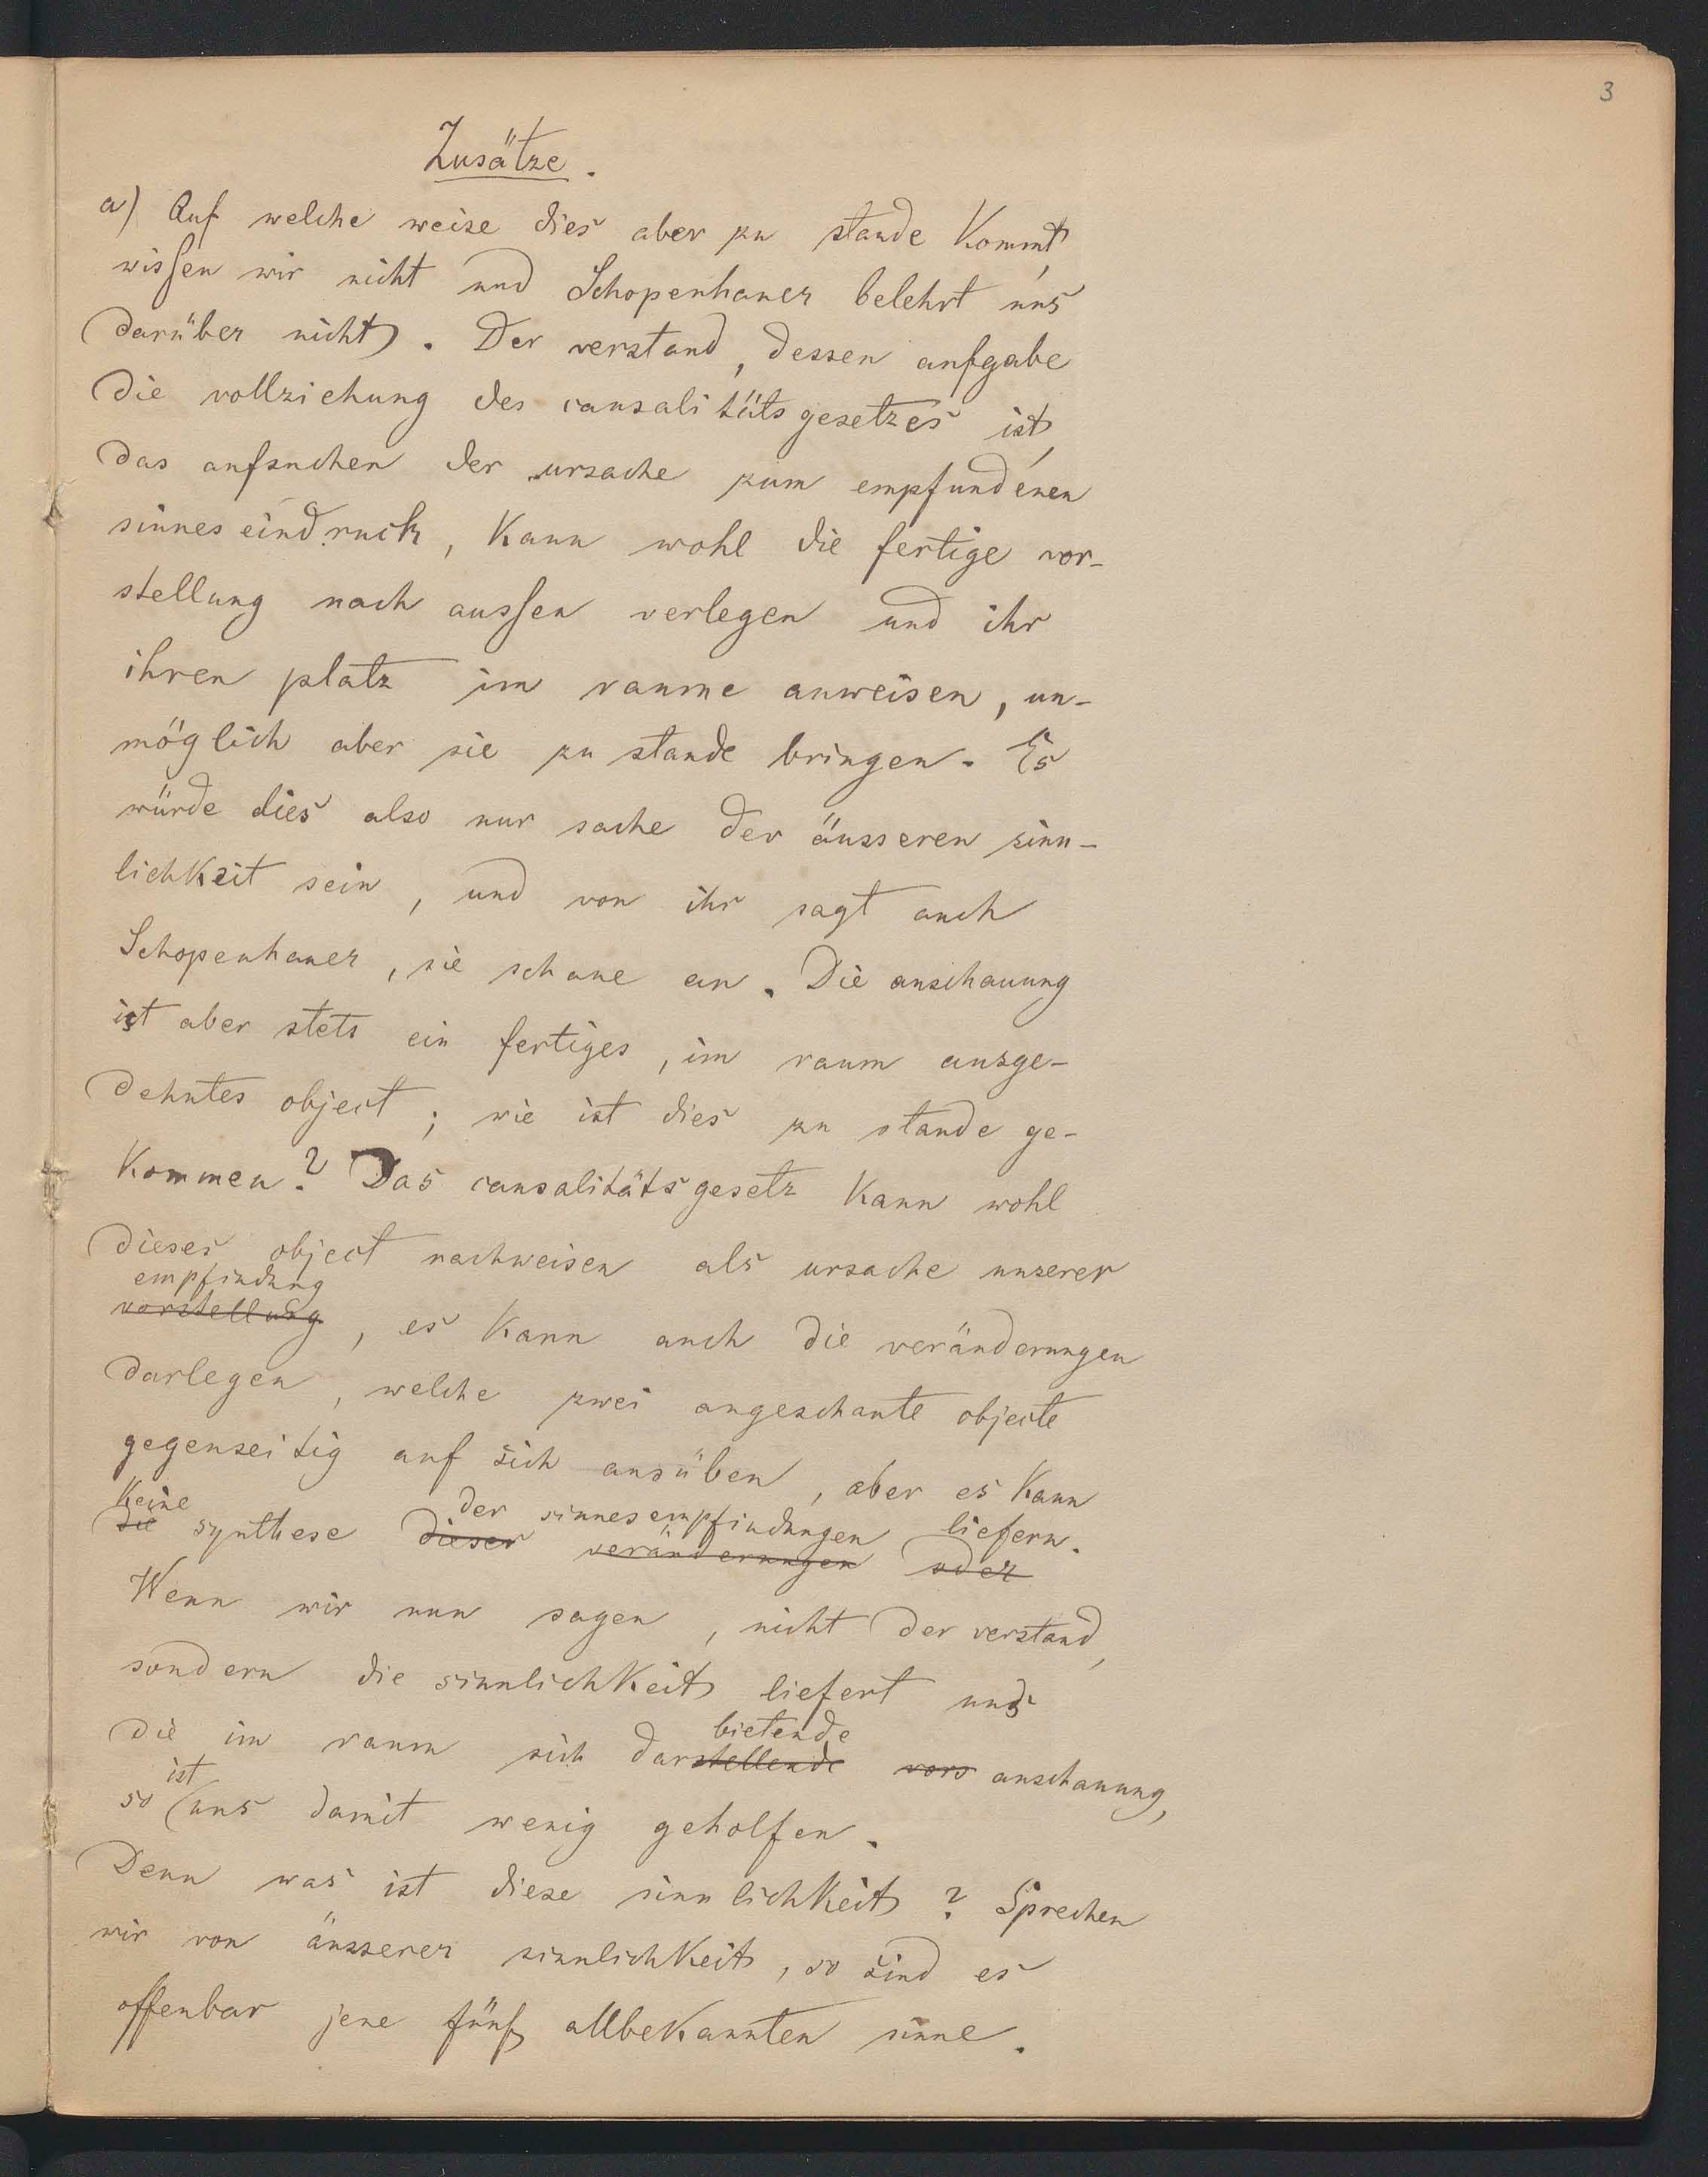 3
Zusätze.
a) Auf welche weise dies aber zu stande kommt,
wissen wir nicht und Schopenhauer belehrt uns
darüber nicht. Der verstand, dessen aufgabe
die vollziehung des causalitätsgesetzes ist,
das aufsuchen der ursache zum empfundenen
sinneseindruck, kann wohl die fertige vor-
stellung nach aussen verlegen und ihr
ihren platz im raume anweisen, un-
möglich aber sie zu stande bringen. Es
würde dies also nur sache der äusseren sinn-
lichkeit sein, und von ihr sagt auch
Schopenhauer, sie schaue an. Die anschauung
ist aber stets ein fertiges, im raum ausge-
dehntes object; wie ist dies zu stande ge-
kommen? Das causalitätsgesetz kann wohl
dieses object nachweisen als ursache unserer
empfindung
vorstellung, es kann auch die veränderungen
darlegen, welche zwei angeschaute objecte
gegenseitig auf sich ausüben, aber es kann
keine der sinnesempfindungen liefern.
die synthese dieser veränderungen oder
Wenn wir nun sagen, nicht der verstand,
sondern die sinnlichkeit liefert uns
bietende
die im raum sich darstellende vors anschauung,
ist
so uns damit wenig geholfen.
Denn was ist diese sinnlichkeit? Sprechen
wir von äusserer sinnlichkeit, so sind es
offenbar jene fünf allbekannten sinne.